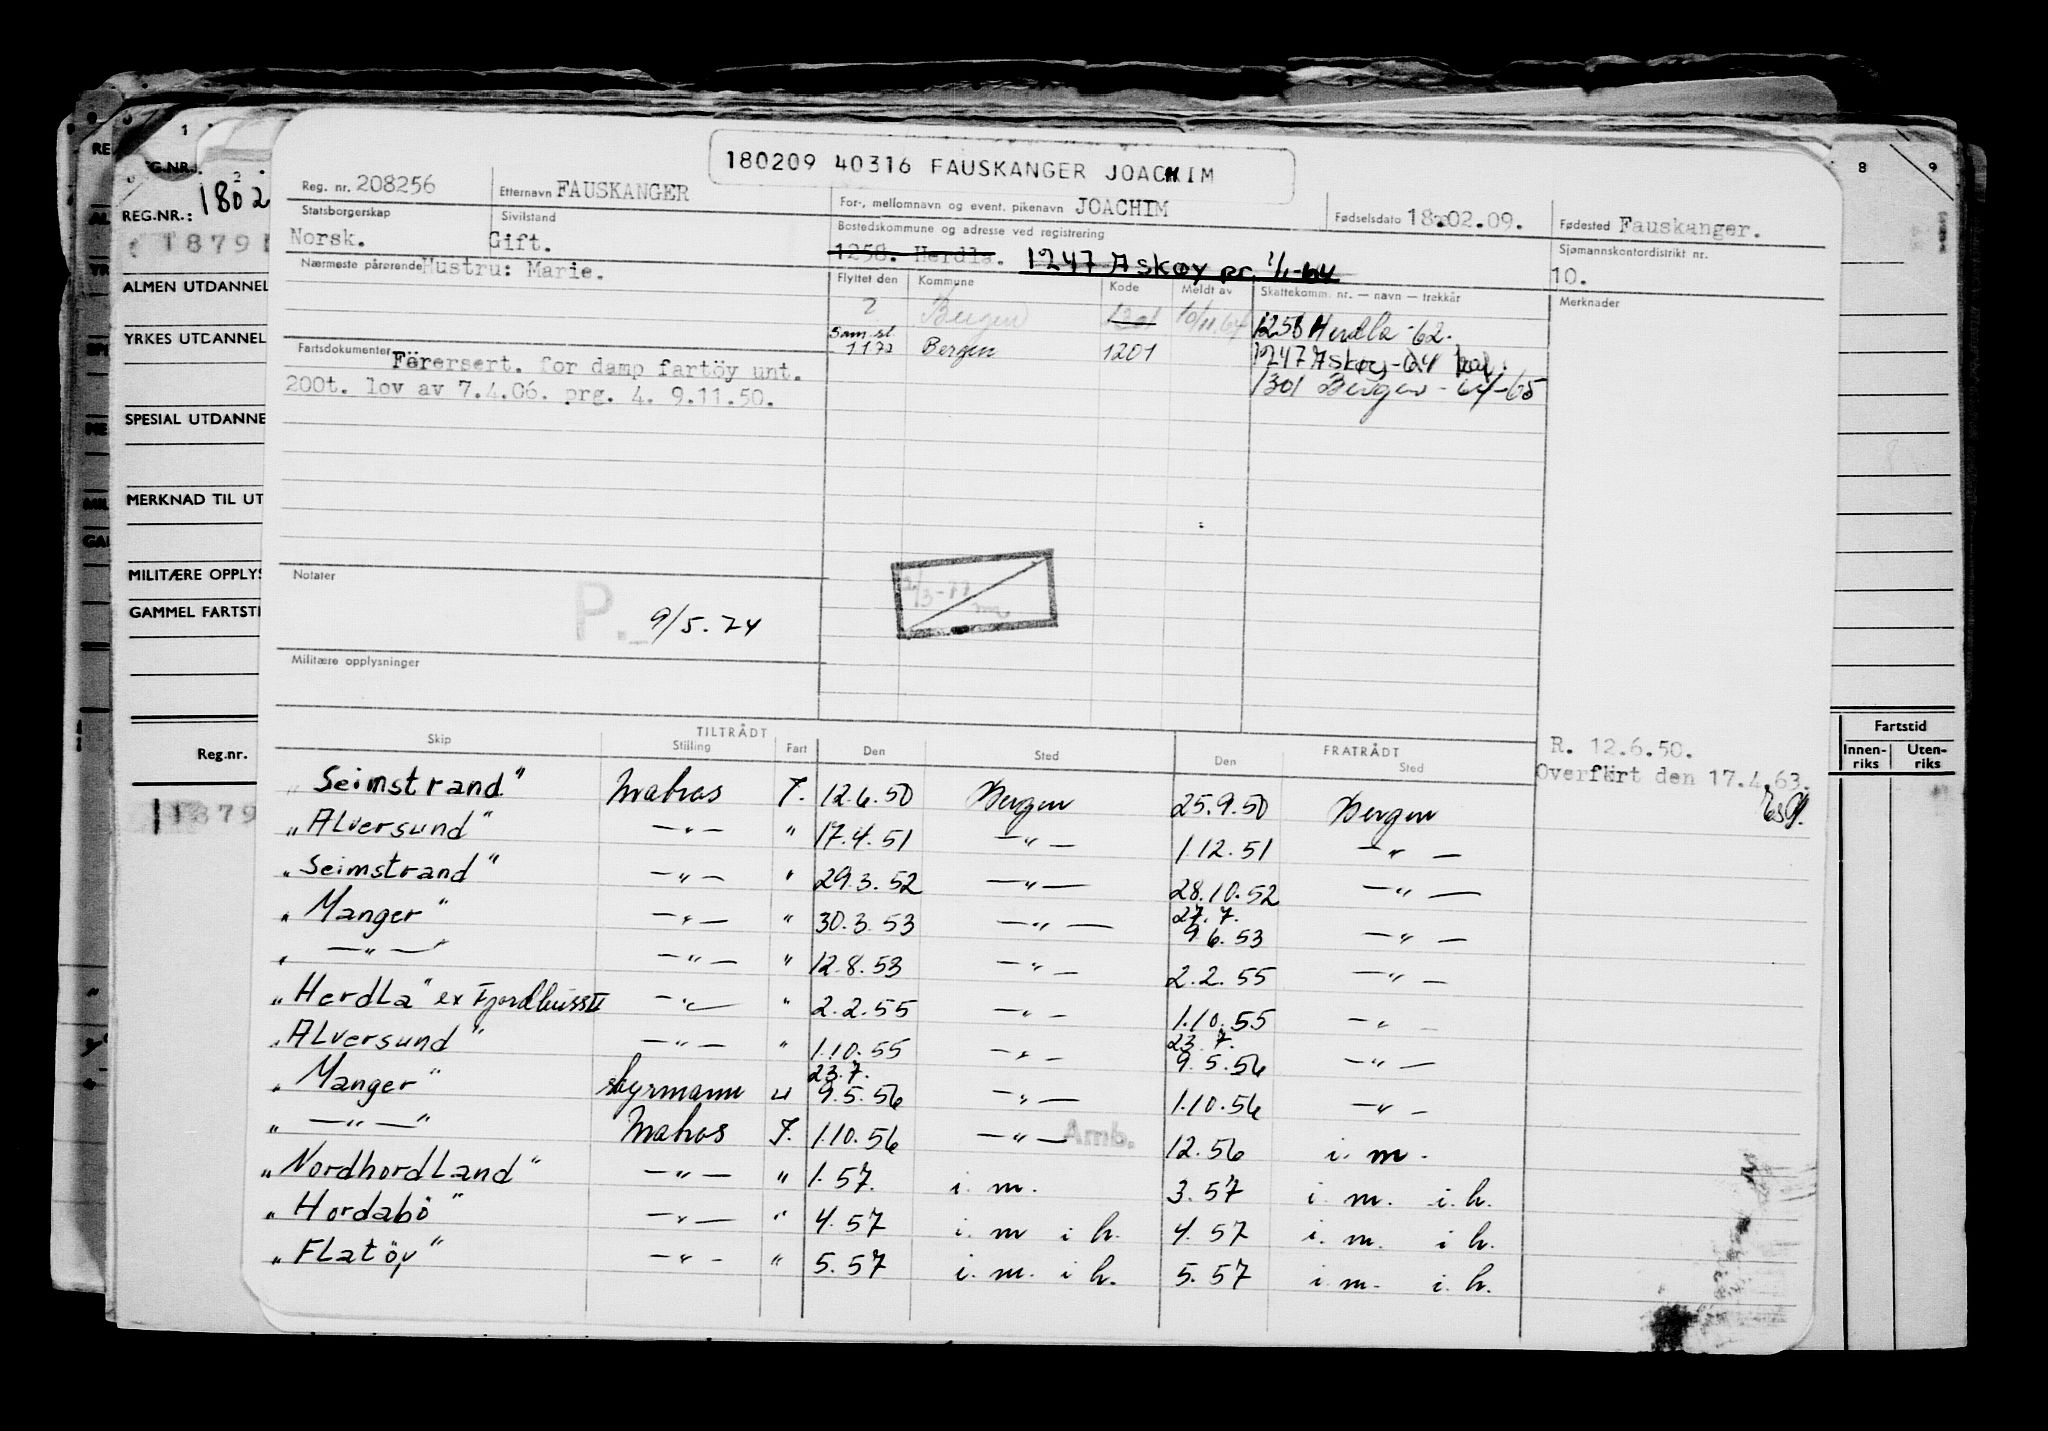 180209 40316 FAUSKANGER JOACHIM
Reg. nr. 208256 Etternavn FAUSKANGER For-, mellomnavn og event. pikenavn JOACHIM Fødselsdato 18.02.09. Fødested Fauskanger.
Statsborgerskap Norsk. Sivilstand Gift. Bostedskommune og adresse ved registrering 1258. Herdla. 1247 Askøy pr. 1/1-64 Sjømannskontordistrikt nr. 10.
Nærmeste pårørende Hustru: Marie.
Flyttet den Kommune Kode Meldt av Skattekomm. nr. — navn — trekkår Merknader
2 Bergen 1301 10/11.64 1258 Herdla -62.
Sam.sl. 1172 Bergen 1201 1247 Askøy -64
1301 Bergen - 64-65
Fartsdokumenter Førersert. for damp fartöy unt.
200t. lov av 7.4.06. prg. 4. 9.11.50.
Notater
P. 9/5.74
Militære opplysninger
TILTRÅDT FRATRÅDT
Skip Stilling Fart Den Sted Den Sted
R. 12.6.50.
Overført den 17.4.63.
"Seimstrand" Matros J. 12.6.50 Bergen 25.9.50 Bergen
"Alversund" —"— " 17.4.51 —"— 1.12.51 —"—
"Seimstrand" —"— " 29.3.52 —"— 28.10.52 —"—
"Manger" —"— " 30.3.53 —"— 27.7. 9.6.53 —"—
" —"— " —"— " 12.8.53 —"— 2.2.55 —"—
"Herdla" ex Fjordbuss II —"— " 2.2.55 —"— 1.10.55 —"—
"Alversund" —"— " 1.10.55 —"— 23.7. 9.5.56 —"—
"Manger" styrmann " 23.7. 9.5.56 —"— 1.10.56 —"—
" —"— " Matros J. 1.10.56 —"— Amb. 12.56 i. m.
"Nordhordland" —"— " 1.57. i. m. 3.57 i. m. i. h.
"Hordabö" —"— " 4.57 i. m i h. 4.57 i. m. i h.
"Flatöy" —"— " 5.57 i. m. i h. 5.57 i m. i. h.
REG.NR.: 1802
1879
ALMEN UTDANNEL
YRKES UTDANNEL
SPESIAL UTDANNE
MERKNAD TIL UT
MILITÆRE OPPLYS
GAMMEL FARTSTI
Reg.nr.
1879
8 9
Fartstid
Innen-riks Uten-riks